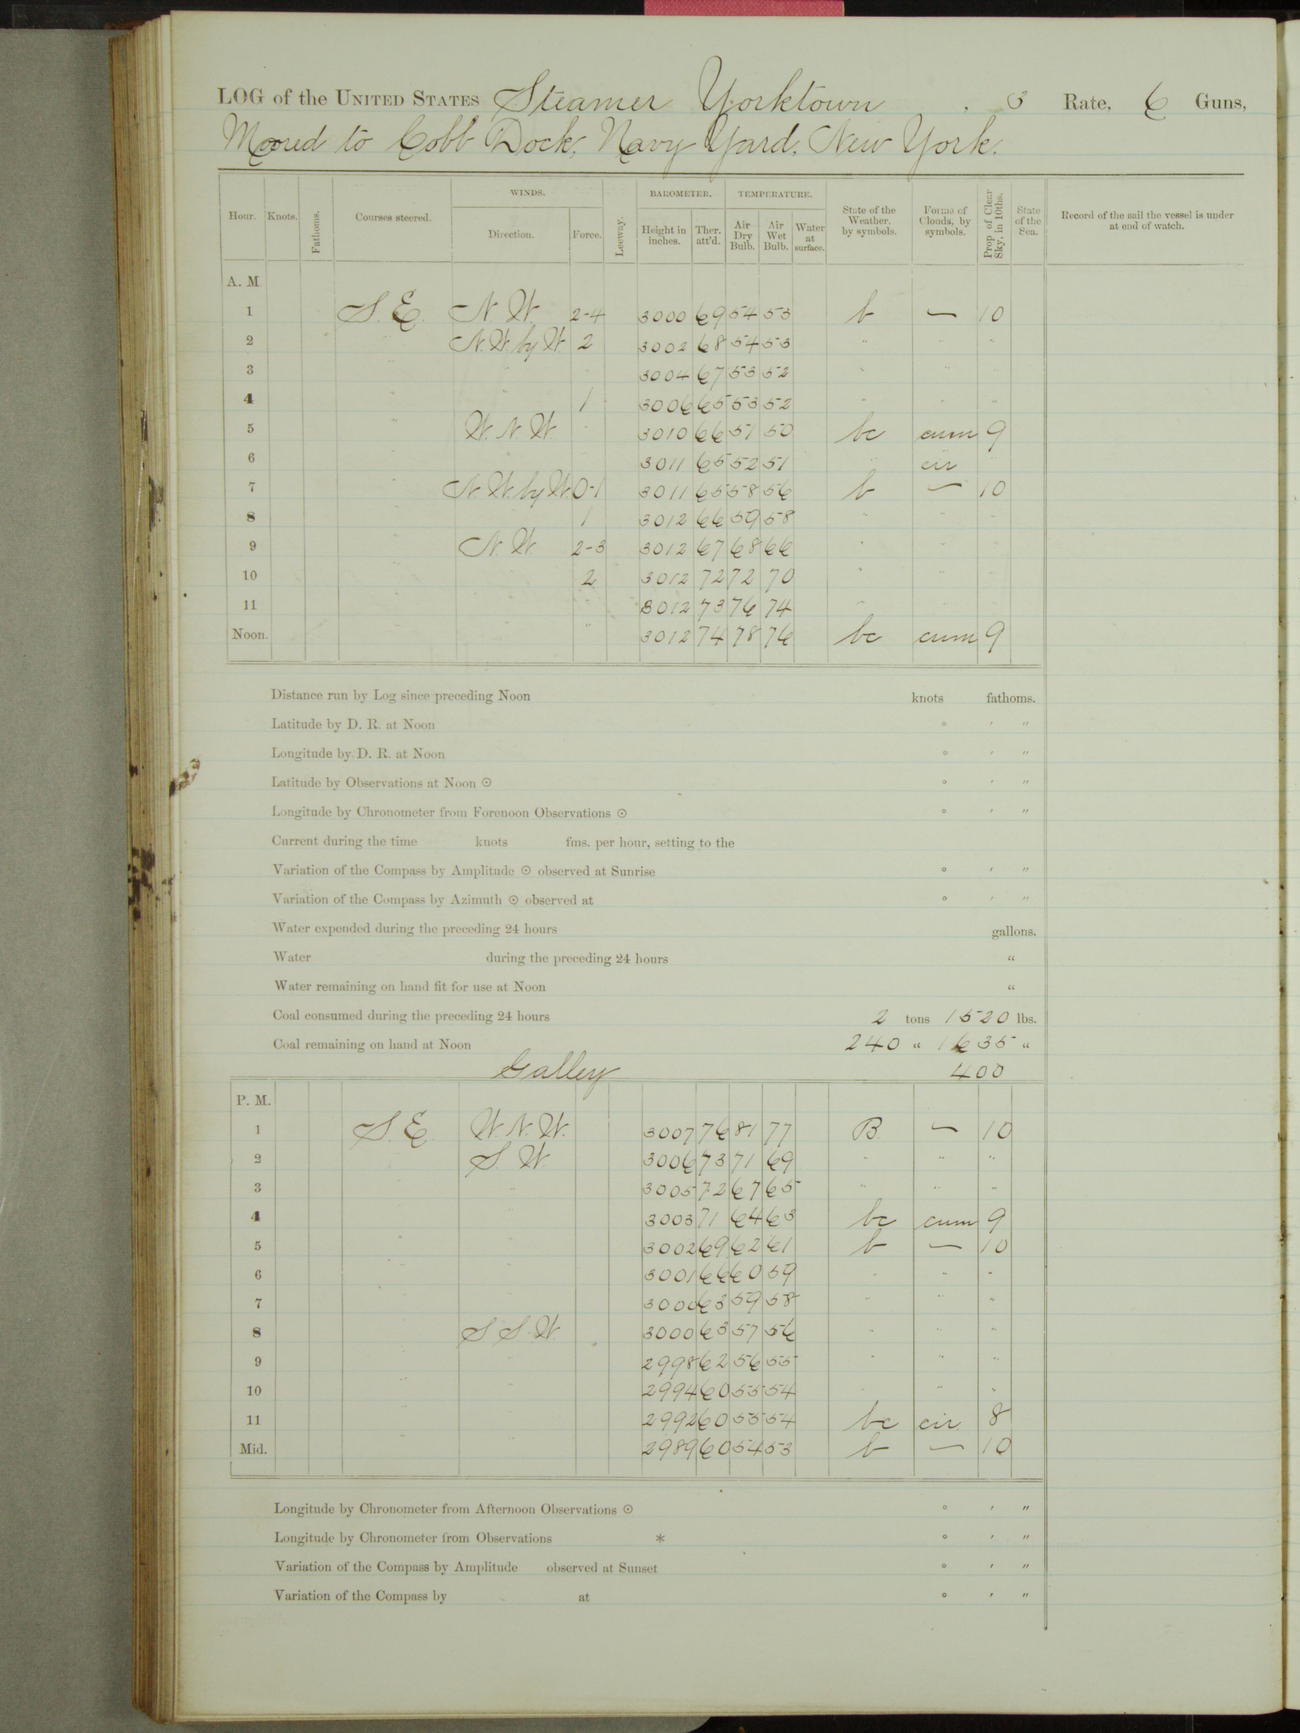 LOG of the UNITED STATES Steamer Yorktown, 3 Rate, 6 Guns,
Moored to Cobb Dock, Navy Yard, New York.
Hour. Knots. Fathoms. Courses steered. WINDS. Direction. Force. Leeway. BAROMETER. Height in inches. Ther. att'd. TEMPERATURE. Air Dry Bulb. Air Wet Bulb. Water at surface. State of the Weather. by symbols. Forms of Clouds, by symbols. Prop. of Clear Sky, in 10ths. State of the Sea. Record of the sail the vessel is under at end of watch.
A. M.
1 S. E. N. W. 2-4 3000 69 54 53 b — 10
2 " N. W. by W. 2 3002 68 54 53 " " "
3 " " " 3004 67 53 52 " " "
4 " " 1 3006 65 53 52 " " "
5 " W. N. W. " 3010 66 51 50 bc cum 9
6 " " " 3011 65 52 51 " cir "
7 " N. W. by W. 0-1 3011 65 58 56 b — 10
8 " " 1 3012 66 59 58 " " "
9 " N. W. 2-3 3012 67 68 66 " " "
10 " " 2 3012 72 72 70 " " "
11 " " " 3012 73 76 74 " " "
Noon. " " " 3012 74 78 76 bc cum 9
Distance run by Log since preceding Noon knots fathoms.
Latitude by D. R. at Noon ° ′ ″
Longitude by D. R. at Noon ° ′ ″
Latitude by Observations at Noon ☉ ° ′ ″
Longitude by Chronometer from Forenoon Observations ☉ ° ′ ″
Current during the time knots fms. per hour, setting to the
Variation of the Compass by Amplitude ☉ observed at Sunrise ° ′ ″
Variation of the Compass by Azimuth ☉ observed at ° ′ ″
Water expended during the preceding 24 hours gallons.
Water during the preceding 24 hours "
Water remaining on hand fit for use at Noon "
Coal consumed during the preceding 24 hours 2 tons 1520 lbs.
Coal remaining on hand at Noon 240 " 1635 "
Galley 400
P. M.
1 S. E. W. N. W. 3007 76 81 77 B — 10
2 " S. W. 3006 73 71 69 " " "
3 " " 3005 72 67 65 " " "
4 " " 3003 71 64 63 bc cum 9
5 " " 3002 69 62 61 b — 10
6 " " 3001 66 60 59 " " "
7 " " 3000 63 59 58 " " "
8 " S. S. W. 3000 63 57 56 " " "
9 " " 2998 62 56 55 " " "
10 " " 2994 60 55 54 " " "
11 " " 2992 60 55 54 bc cir 8
Mid. " " 2989 60 54 53 b — 10
Longitude by Chronometer from Afternoon Observations ☉ ° ′ ″
Longitude by Chronometer from Observations * ° ′ ″
Variation of the Compass by Amplitude observed at Sunset ° ′ ″
Variation of the Compass by at ° ′ ″